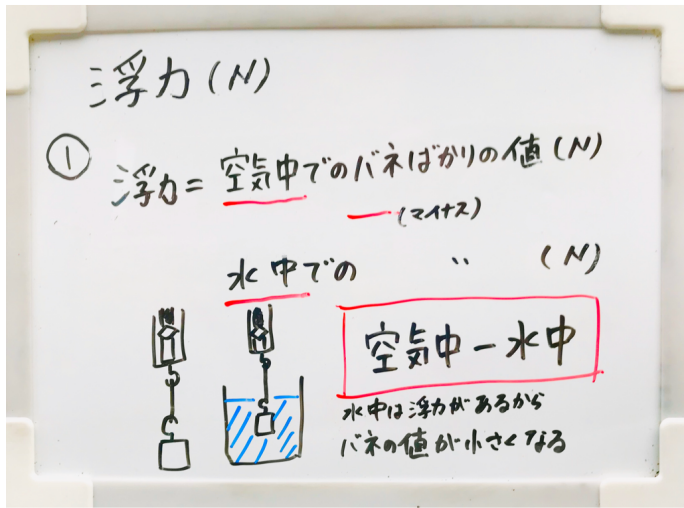 浮力(N)
① 浮力=空気中でのバネばかりの値(N)
ー(マイナス)
水中での 〃 (N)
空気中ー水中
水中は浮力があるから
バネの値が小さくなる